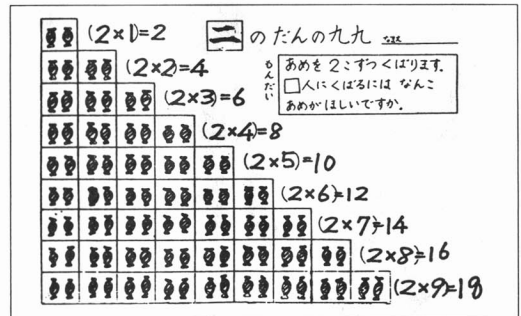 二のだんの九九 なまえ
もんだい
あめを2こずつくばります。
□人にくばるには なんこ
あめがほしいですか。
(2×1)=2
(2×2)=4
(2×3)=6
(2×4)=8
(2×5)=10
(2×6)=12
(2×7)=14
(2×8)=16
(2×9)=18